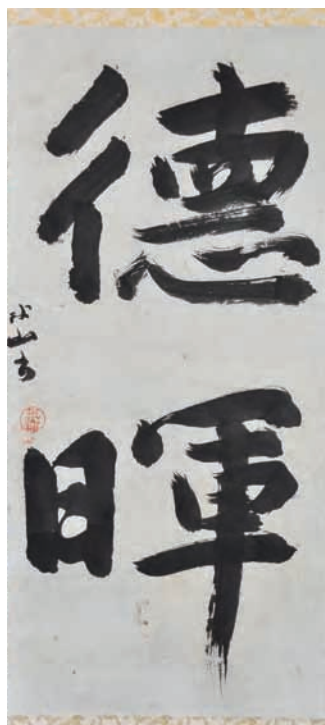 德
暉
山書